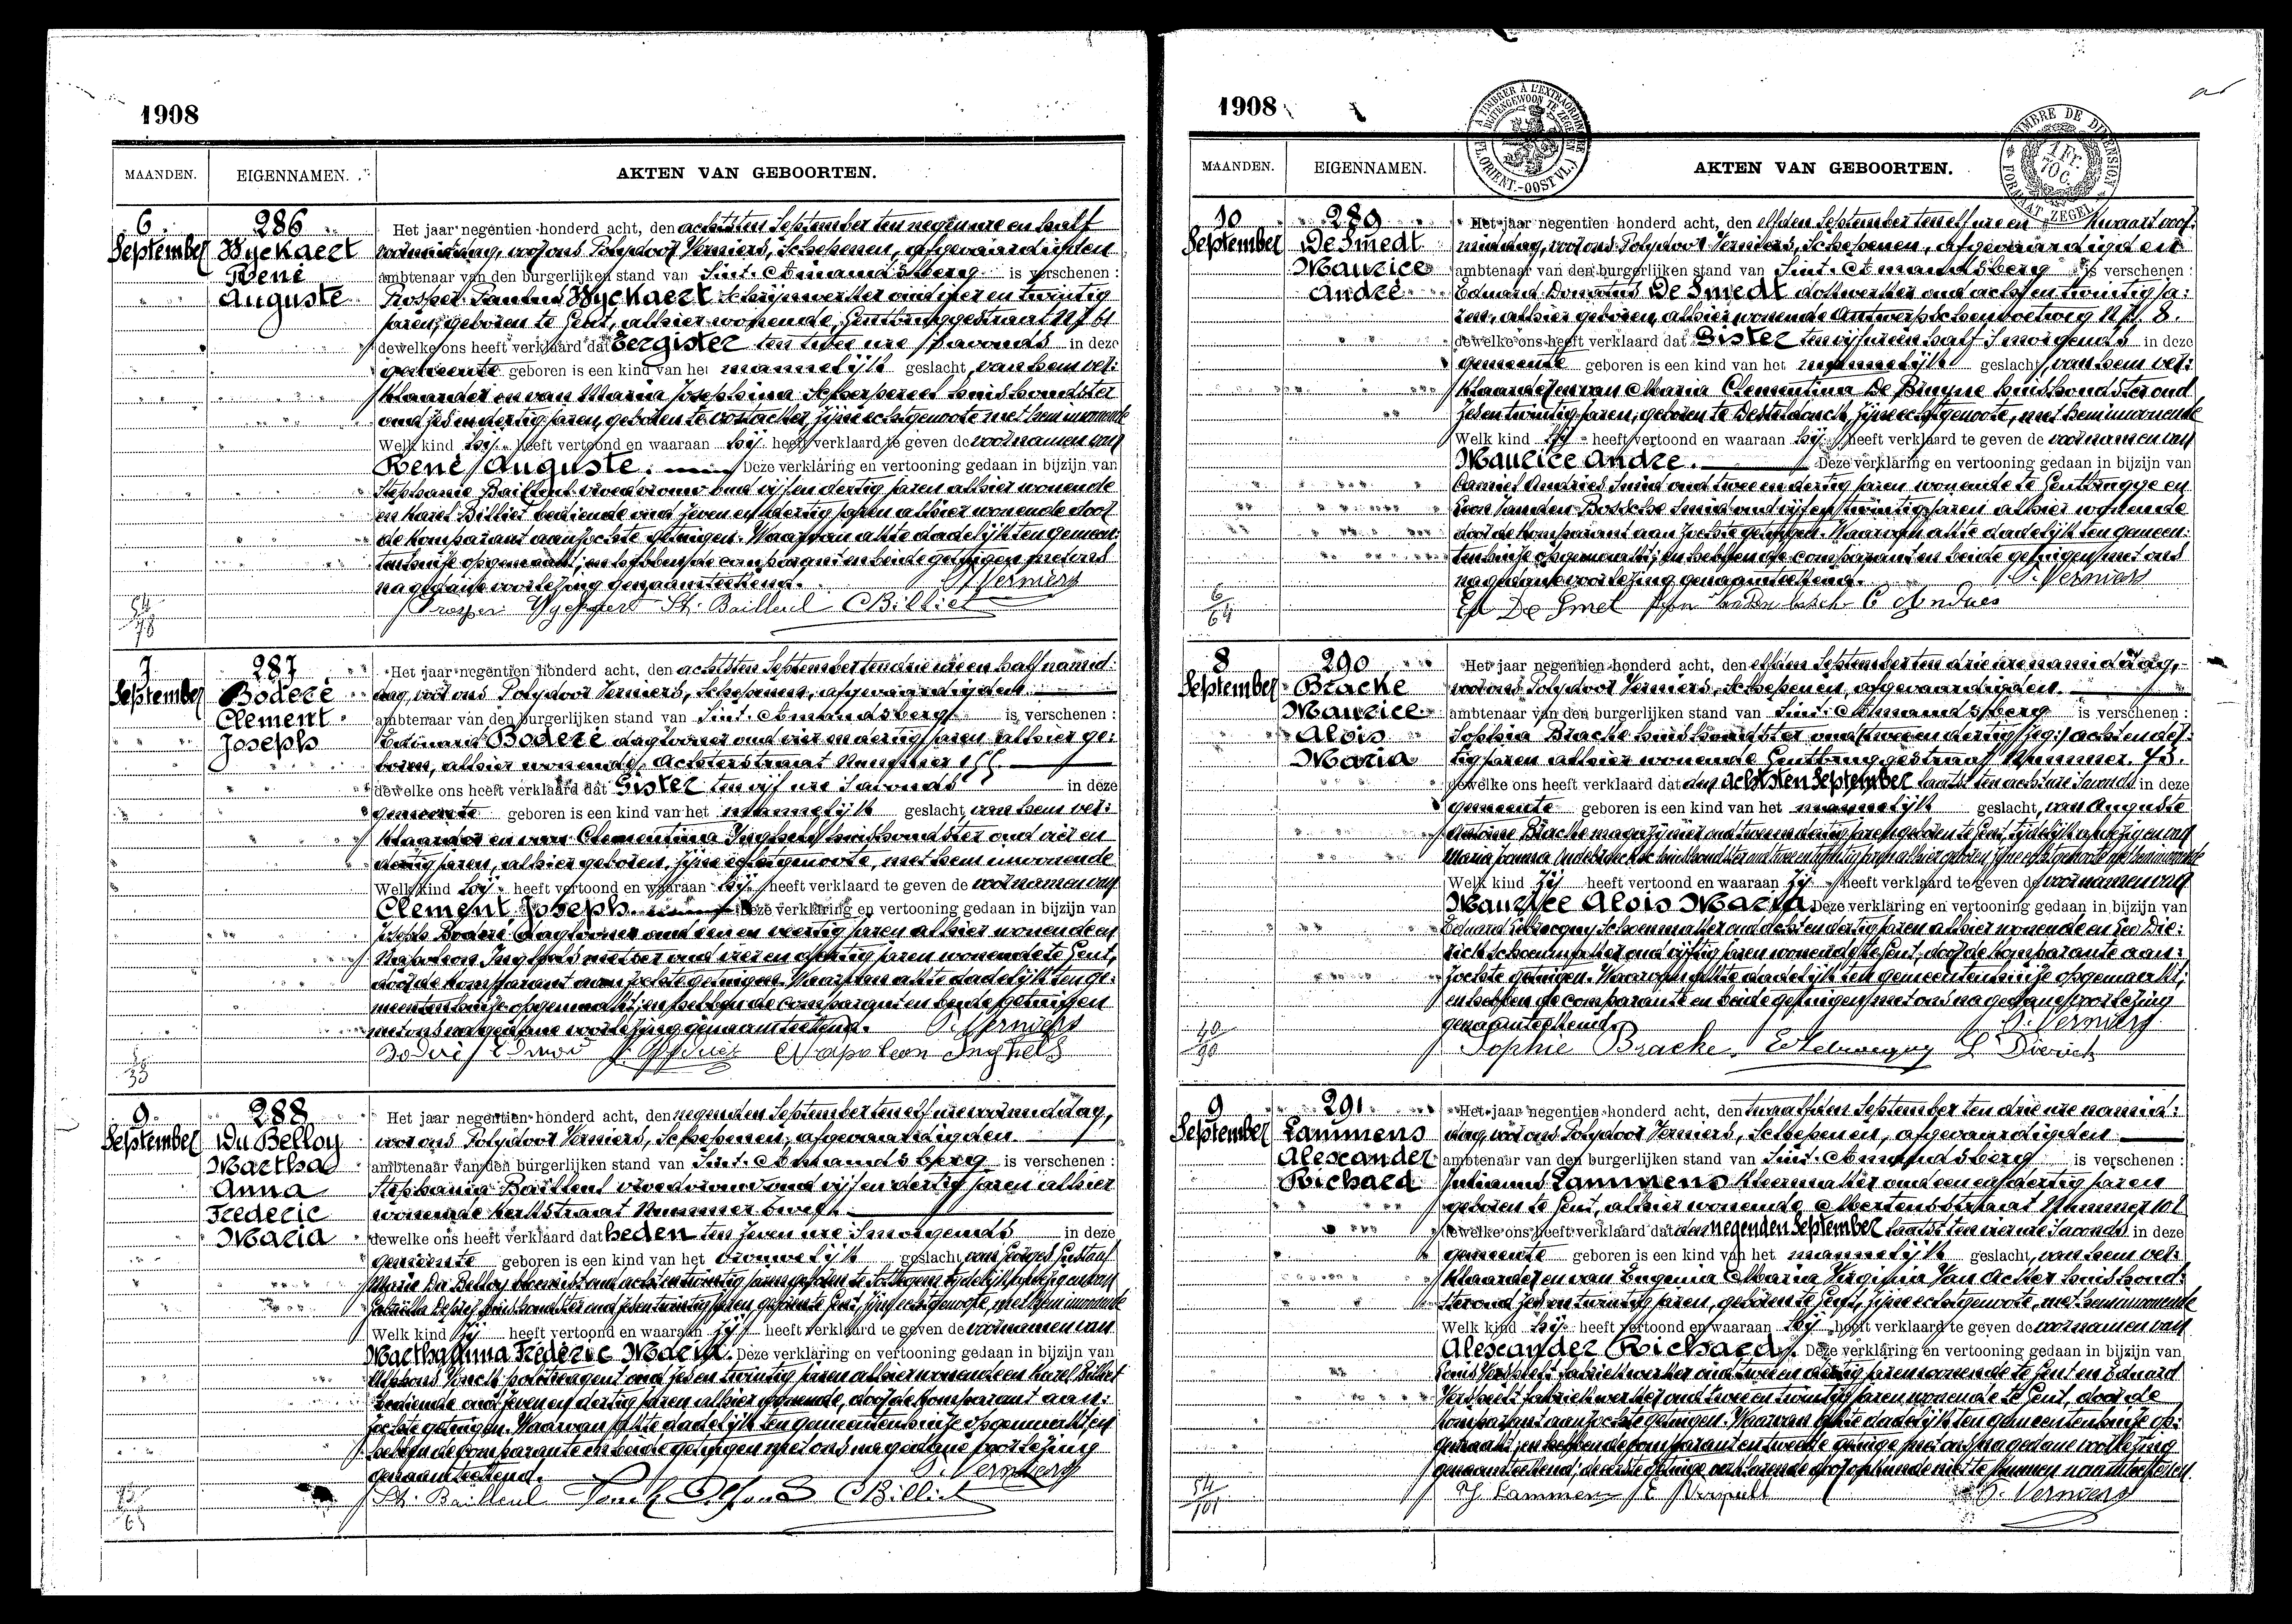 1908
MAANDEN. EIGENNAMEN. AKTEN VAN GEBOORTEN.
6 September
286
Wyckaert
René
Auguste
Het jaar negentien honderd acht, den achtsten September ten negen ure en half
voormiddag, voor ons Polydoor Verniers, Schepenen, afgevaardigden
ambtenaar van den burgerlijken stand van Sint-Amandsberg is verschenen :
Prosper Wyckaert schrijnwerker oud vier en twintig
jaren, geboren te Gent, alhier wonende, Gentbruggestraat Nr 61
dewelke ons heeft verklaard dat eergister ten twee ure 's avonds in deze
gemeente geboren is een kind van het mannelijk geslacht, van hem ver:
klaarder en van Maria Josephina Scherpereel huishoudster
oud zes en dertig jaren, geboren te Oostacker, zijne echtgenoote met hem inwonende
Welk kind hij heeft vertoond en waaraan hij heeft verklaard te geven de voornamen van
René Auguste. Deze verklaring en vertooning gedaan in bijzijn van
Stephanie Bailleul vroedvrouw oud vijf en dertig jaren alhier wonende
en Karel Billiet bediende oud zeven en dertig jaren alhier wonende door
de komparant aanzochte getuigen. Waarvan akte dadelijk ten gemeen:
tenhuize opgemaakt; en hebben de comparant en beide getuigen met ons
na gedane voorlezing genaamteekend. P. Verniers
St. Bailleul C Billiet
54/78
7 September
287
Boderé
Clement
Joseph
Het jaar negentien honderd acht, den achtsten September ten drie ure en half namid:
dag, voor ons Polydoor Verniers, Schepenen, afgevaardigden
ambtenaar van den burgerlijken stand van Sint-Amandsberg is verschenen :
Edmond Boderé daglooner oud vier en dertig jaren, alhier ge:
boren, alhier wonende, Achterstraat Nummer 155.
dewelke ons heeft verklaard dat Gister ten vijf ure 's avonds in deze
gemeente geboren is een kind van het mannelijk geslacht van hem ver:
klaarder en van Clementina Inghels huishoudster oud vier en
dertig jaren, alhier geboren, zijne echtgenoote, met hem inwonende
Welk kind hij heeft vertoond en waaraan hij heeft verklaard te geven de voornamen van
Clement Joseph. Deze verklaring en vertooning gedaan in bijzijn van
Boderé daglooner oud een en veertig jaren alhier wonende en
Napoleon Inghels metser oud vier en dertig jaren wonende te Gent,
door de komparant aanzochte getuigen. Waarvan akte dadelijk ten ge:
meentenhuize opgemaakt; en hebben de comparant en beide getuigen
met ons na gedane voorlezing genaamteekend. P. Verniers
Boderé Edmond Napoleon Inghels
9 September
288
Du Belloy
Martha
Anna
Frederic
Maria
Het jaar negentien honderd acht, den negenden September ten elf ure voormiddag,
voor ons Polydoor Verniers, Schepenen, afgevaardigden
ambtenaar van den burgerlijken stand van Sint-Amandsberg is verschenen :
Stephania Bailleul vroedvrouw oud vijf en dertig jaren alhier
wonende Kerkstraat Nummer twelf.
dewelke ons heeft verklaard dat heden ten zeven ure 's morgends in deze
gemeente geboren is een kind van het vrouwelijk geslacht van Georges Gustaaf
Marie Du Belloy oud acht en twintig jaren geboren te Sottegem tijdelijk afwezig en van
Gabriella huishoudster oud zes en twintig jaren, geboren te Gent, zijne echtgenoote, met hem inwonende
Welk kind zij heeft vertoond en waaraan zij heeft verklaard te geven de voornamen van
Martha Anna Fréderic Maria. Deze verklaring en vertooning gedaan in bijzijn van
Alphons politieagent oud zes en twintig jaren alhier wonende en Karel Billiet
bediende oud zeven en dertig jaren alhier wonende, door de komparant aan:
zochte getuigen. Waarvan akte dadelijk ten gemeentenhuize opgemaakt; en
hebben de comparante en beide getuigen met ons na gedane voorlezing
genaamteekend. P. Verniers
St. Bailleul C Billiet
1908
A TIMBRER À L'EXTRAORDINAIRE BUITENGEWOON TE ZEGELEN (FL. ORIENT.-OOST VL.)
TIMBRE DE DIMENSION 1 Fr. 70 C. FORMAAT ZEGEL
MAANDEN. EIGENNAMEN. AKTEN VAN GEBOORTEN.
10 September
289
De Smedt
Maurice
André
Het jaar negentien honderd acht, den elfden September ten elf ure en kwaart voor:
middag, voor ons Polydoor Verniers, Schepenen, afgevaardigden
ambtenaar van den burgerlijken stand van Sint-Amandsberg is verschenen :
Eduard Donatus De Smedt dokwerker oud acht en twintig ja:
ren, alhier geboren, alhier wonende Antwerpschensteenweg Nr. 8.
dewelke ons heeft verklaard dat Gister ten vijf ure en half 's morgends in deze
gemeente geboren is een kind van het mannelijk geslacht, van hem ver:
klaarder en van Maria Clementina De Bruyne huishoudster oud
zes en twintig jaren, geboren te Desteldonck, zijne echtgenoote, met hem inwonende
Welk kind hij heeft vertoond en waaraan hij heeft verklaard te geven de voornamen van
Maurice André. Deze verklaring en vertooning gedaan in bijzijn van
Camiel Andries Smid oud twee en dertig jaren wonende te Gentbrugge en
Leon Vanden Bossche Smid oud vijf en twintig jaren alhier wonende
door de komparant aanzochte getuigen. Waarvan akte dadelijk ten gemeen:
tenhuize opgemaakt; en hebben de comparant en beide getuigen met ons
na gedane voorlezing genaamteekend. P. Verniers
Ed De Smet C Andries
6/64
8 September
290
Bracke
Maurice
Aloïs
Maria
Het jaar negentien honderd acht, den elfden September ten drie ure namiddag,
voor ons Polydoor Verniers, Schepenen, afgevaardigden.
ambtenaar van den burgerlijken stand van Sint-Amandsberg is verschenen :
Sophia Bracke huishoudster oud acht en der:
tig jaren alhier wonende Gentbruggestraat Nummer 73.
dewelke ons heeft verklaard dat den achtsten September laatst ten acht ure 's avonds in deze
gemeente geboren is een kind van het mannelijk geslacht, van Auguste
Antoine Bracke magazijnier oud twee en dertig jaren geboren te Gent, tijdelijk afwezig en van
Maria Joanna huishoudster oud twee en twintig jaren alhier geboren zijne echtgenoote met hem inwonende
Welk kind zij heeft vertoond en waaraan zij heeft verklaard te geven de voornamen van
Maurice Aloïs Maria. Deze verklaring en vertooning gedaan in bijzijn van
Eduard schoenmaker oud acht en dertig jaren alhier wonende en Leo Die:
rick schoenmaker oud vijftig jaren wonende te Gent, door de komparante aan:
zochte getuigen. Waarvan akte dadelijk ten gemeentenhuize opgemaakt;
en hebben de comparante en beide getuigen met ons na gedane voorlezing
genaamteekend. P. Verniers
Sophie Bracke. L Dierick
40/90
9 September
291
Lammens
Alexander
Richard
Het jaar negentien honderd acht, den twaalfden September ten drie ure namid:
dag, voor ons Polydoor Verniers, Schepenen, afgevaardigden
ambtenaar van den burgerlijken stand van Sint-Amandsberg is verschenen :
Julianus Lammens kleermaker oud een en dertig jaren
geboren te Gent, alhier wonende Albertensstraat Nummer 101
dewelke ons heeft verklaard dat den negenden September laatst ten vier ure 's avonds in deze
gemeente geboren is een kind van het mannelijk geslacht, van hem ver:
klaarder en van Eugenia Maria Virginia Van Acker huishoud:
ster oud zes en twintig jaren, geboren te Gent, zijne echtgenoote, met hem inwonende
Welk kind hij heeft vertoond en waaraan hij heeft verklaard te geven de voornamen van
Alexander Richard. Deze verklaring en vertooning gedaan in bijzijn van
Louis Verspielt fabriekwerker oud twee en dertig jaren wonende te Gent en Eduard
Verspielt fabriekwerker oud twee en twintig jaren wonende te Gent, door de
komparant aanzochte getuigen. Waarvan akte dadelijk ten gemeentenhuize op:
gemaakt; en hebben de comparant en tweede getuige met ons na gedane voorlezing
genaamteekend; de eerste getuige verklarende door onkunde niet te kunnen naamteekenen.
J Lammens E Verspielt P. Verniers
54/101